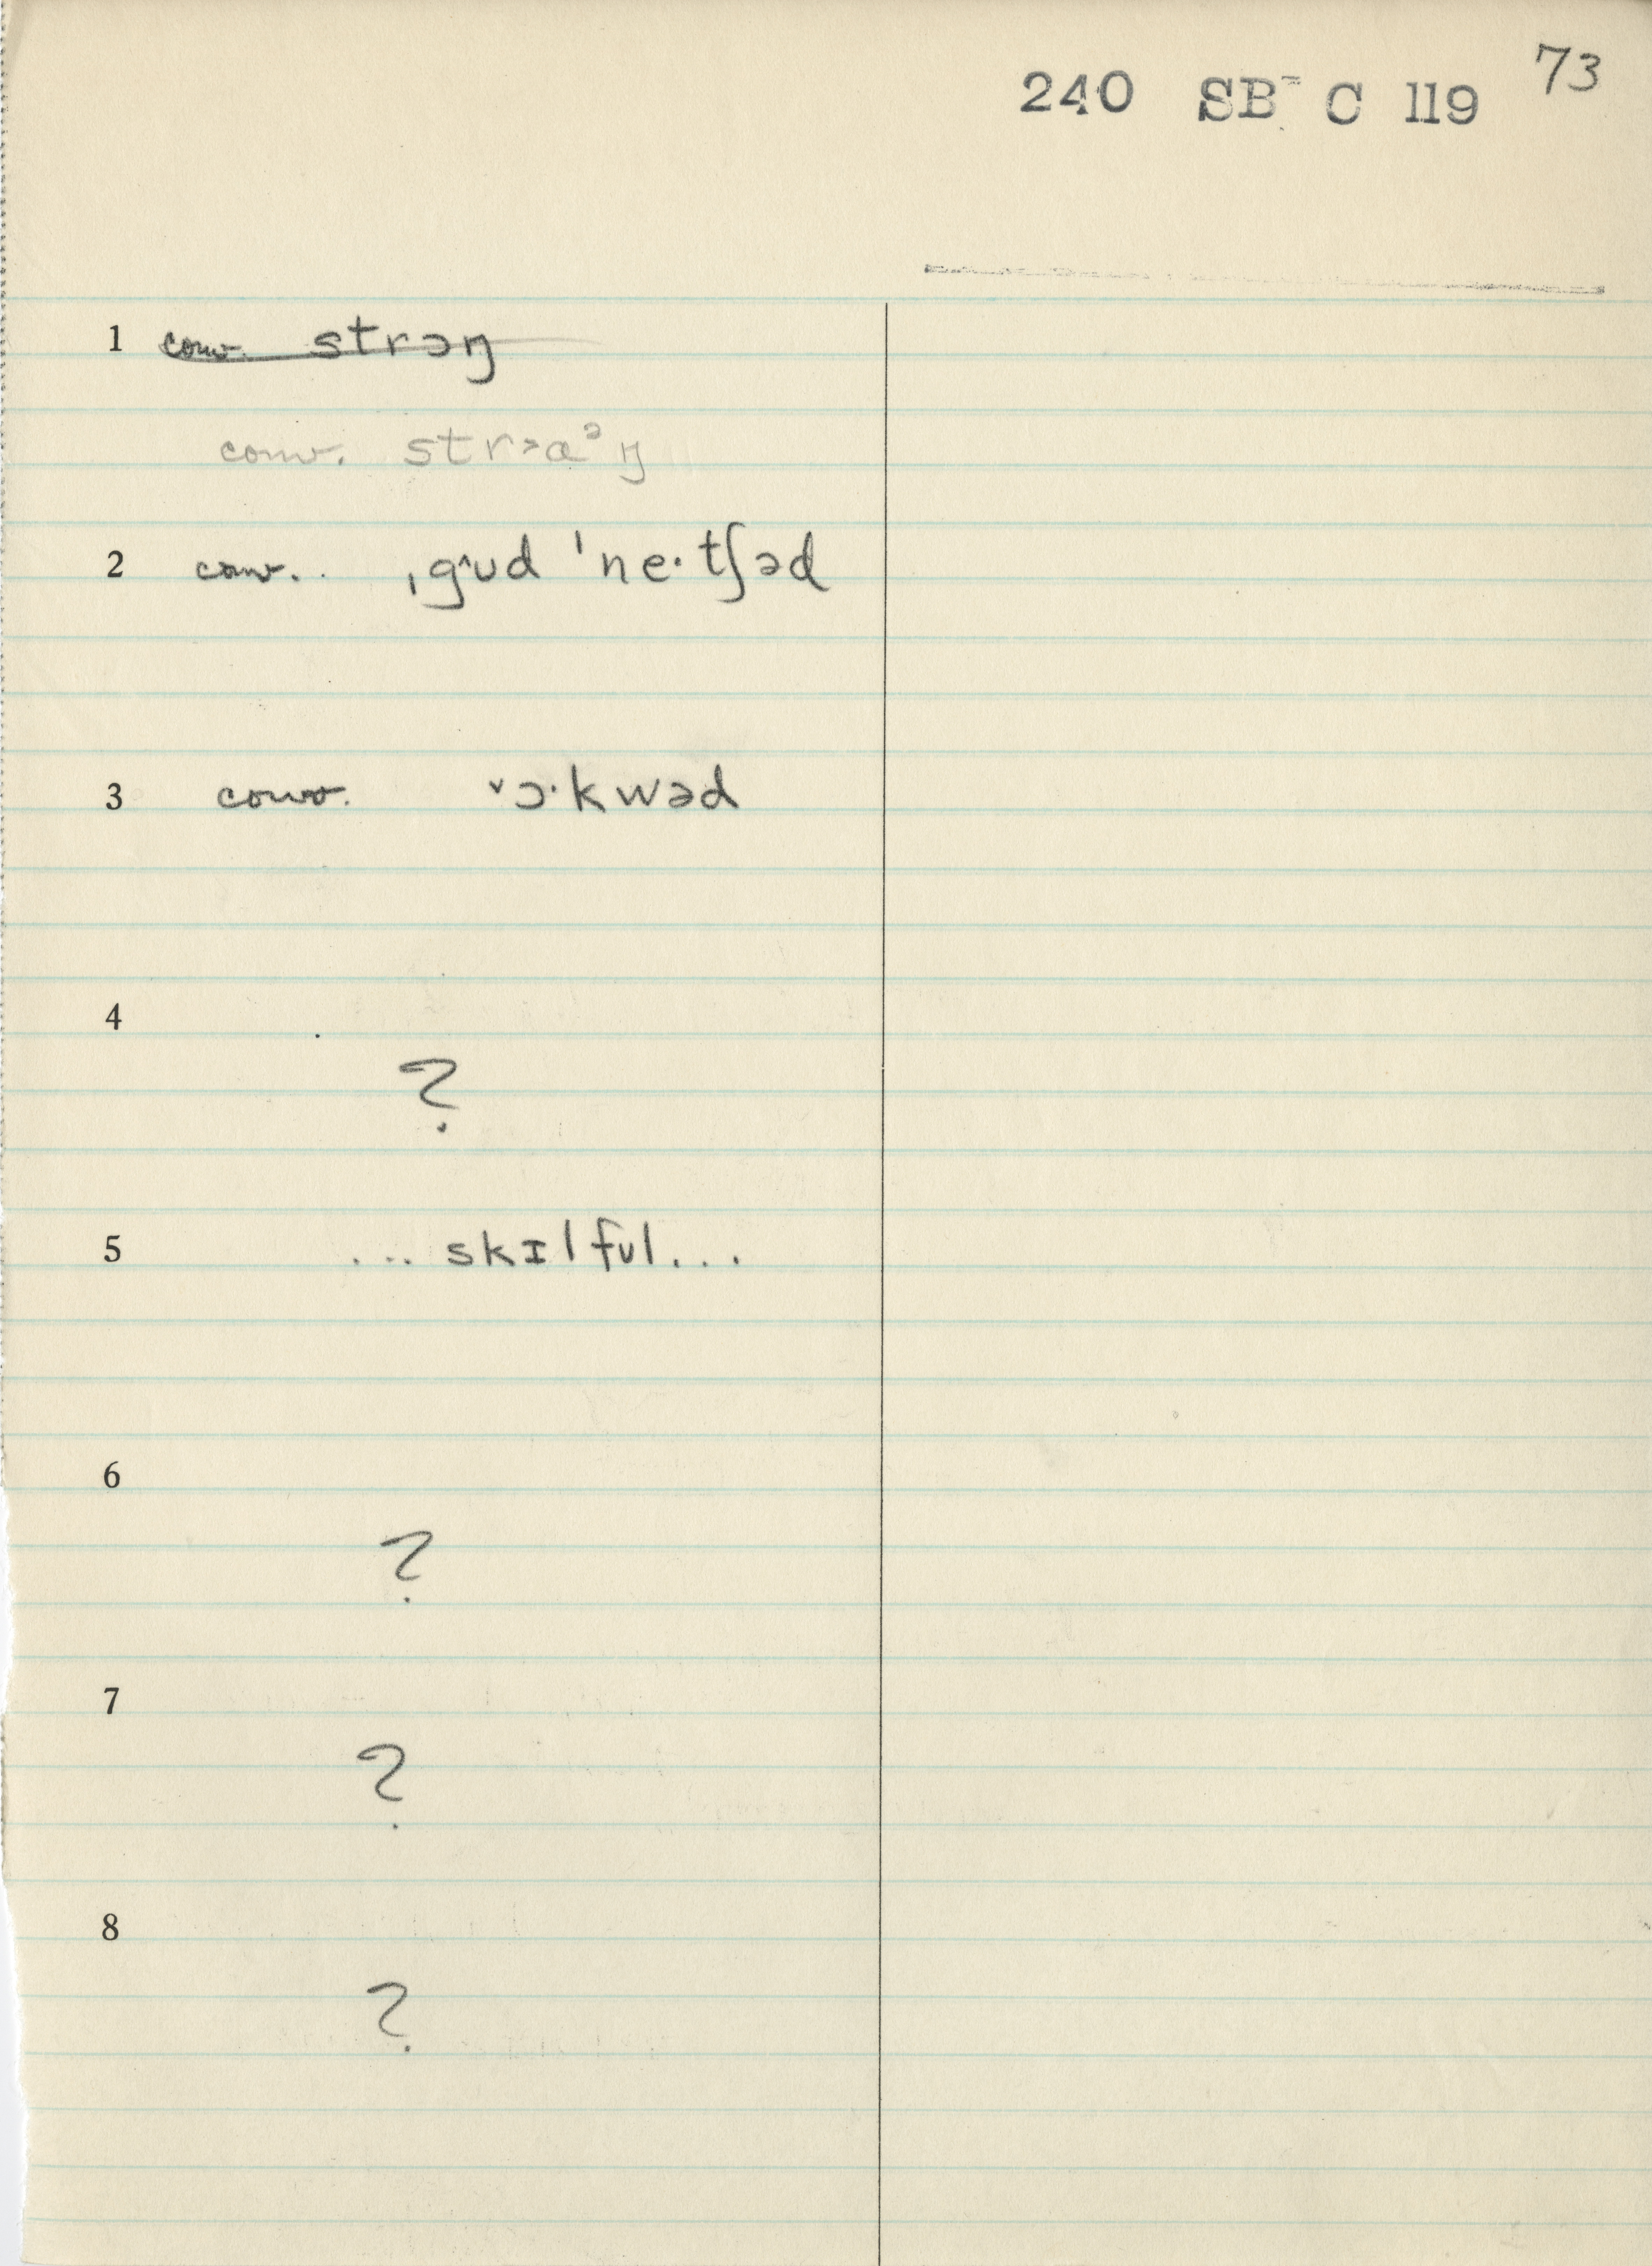 73
240 SB C 119
1 conv. strɔŋ
conv. strɔɑᵊŋ
2 conv.. ˌg^ʊd ˈne·tʃəd
3 conv. ˅ɔ·kwəd
4
?
5 ... skɪlfʊl...
6
?
7
?
8
?